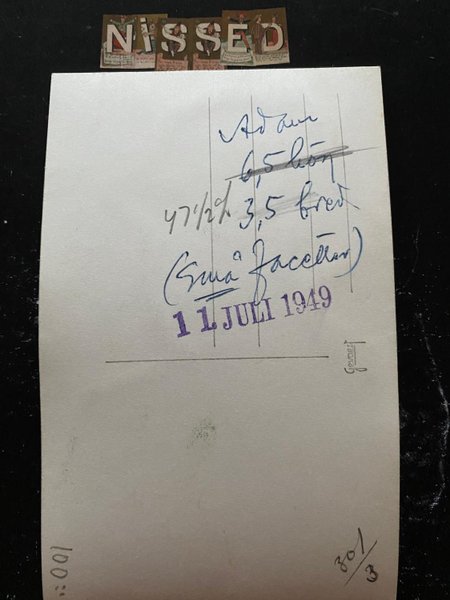 NiSSED
Adam
6,5 hög
47 1/2% 3,5 bred
(Små facetter)
11 JULI 1949
Gevaert
301/3